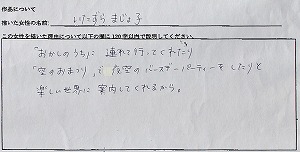 作品について
描いた女性の名前： いたずら まじょ子
この女性を描いた理由について以下の欄に120字以内で説明してください。
「おかしのうち」に 連れて行ってくれたり
「空のおまつり」で 夜空の バースデーパーティーをしたりと
楽しい世界に 案内してくれるから。